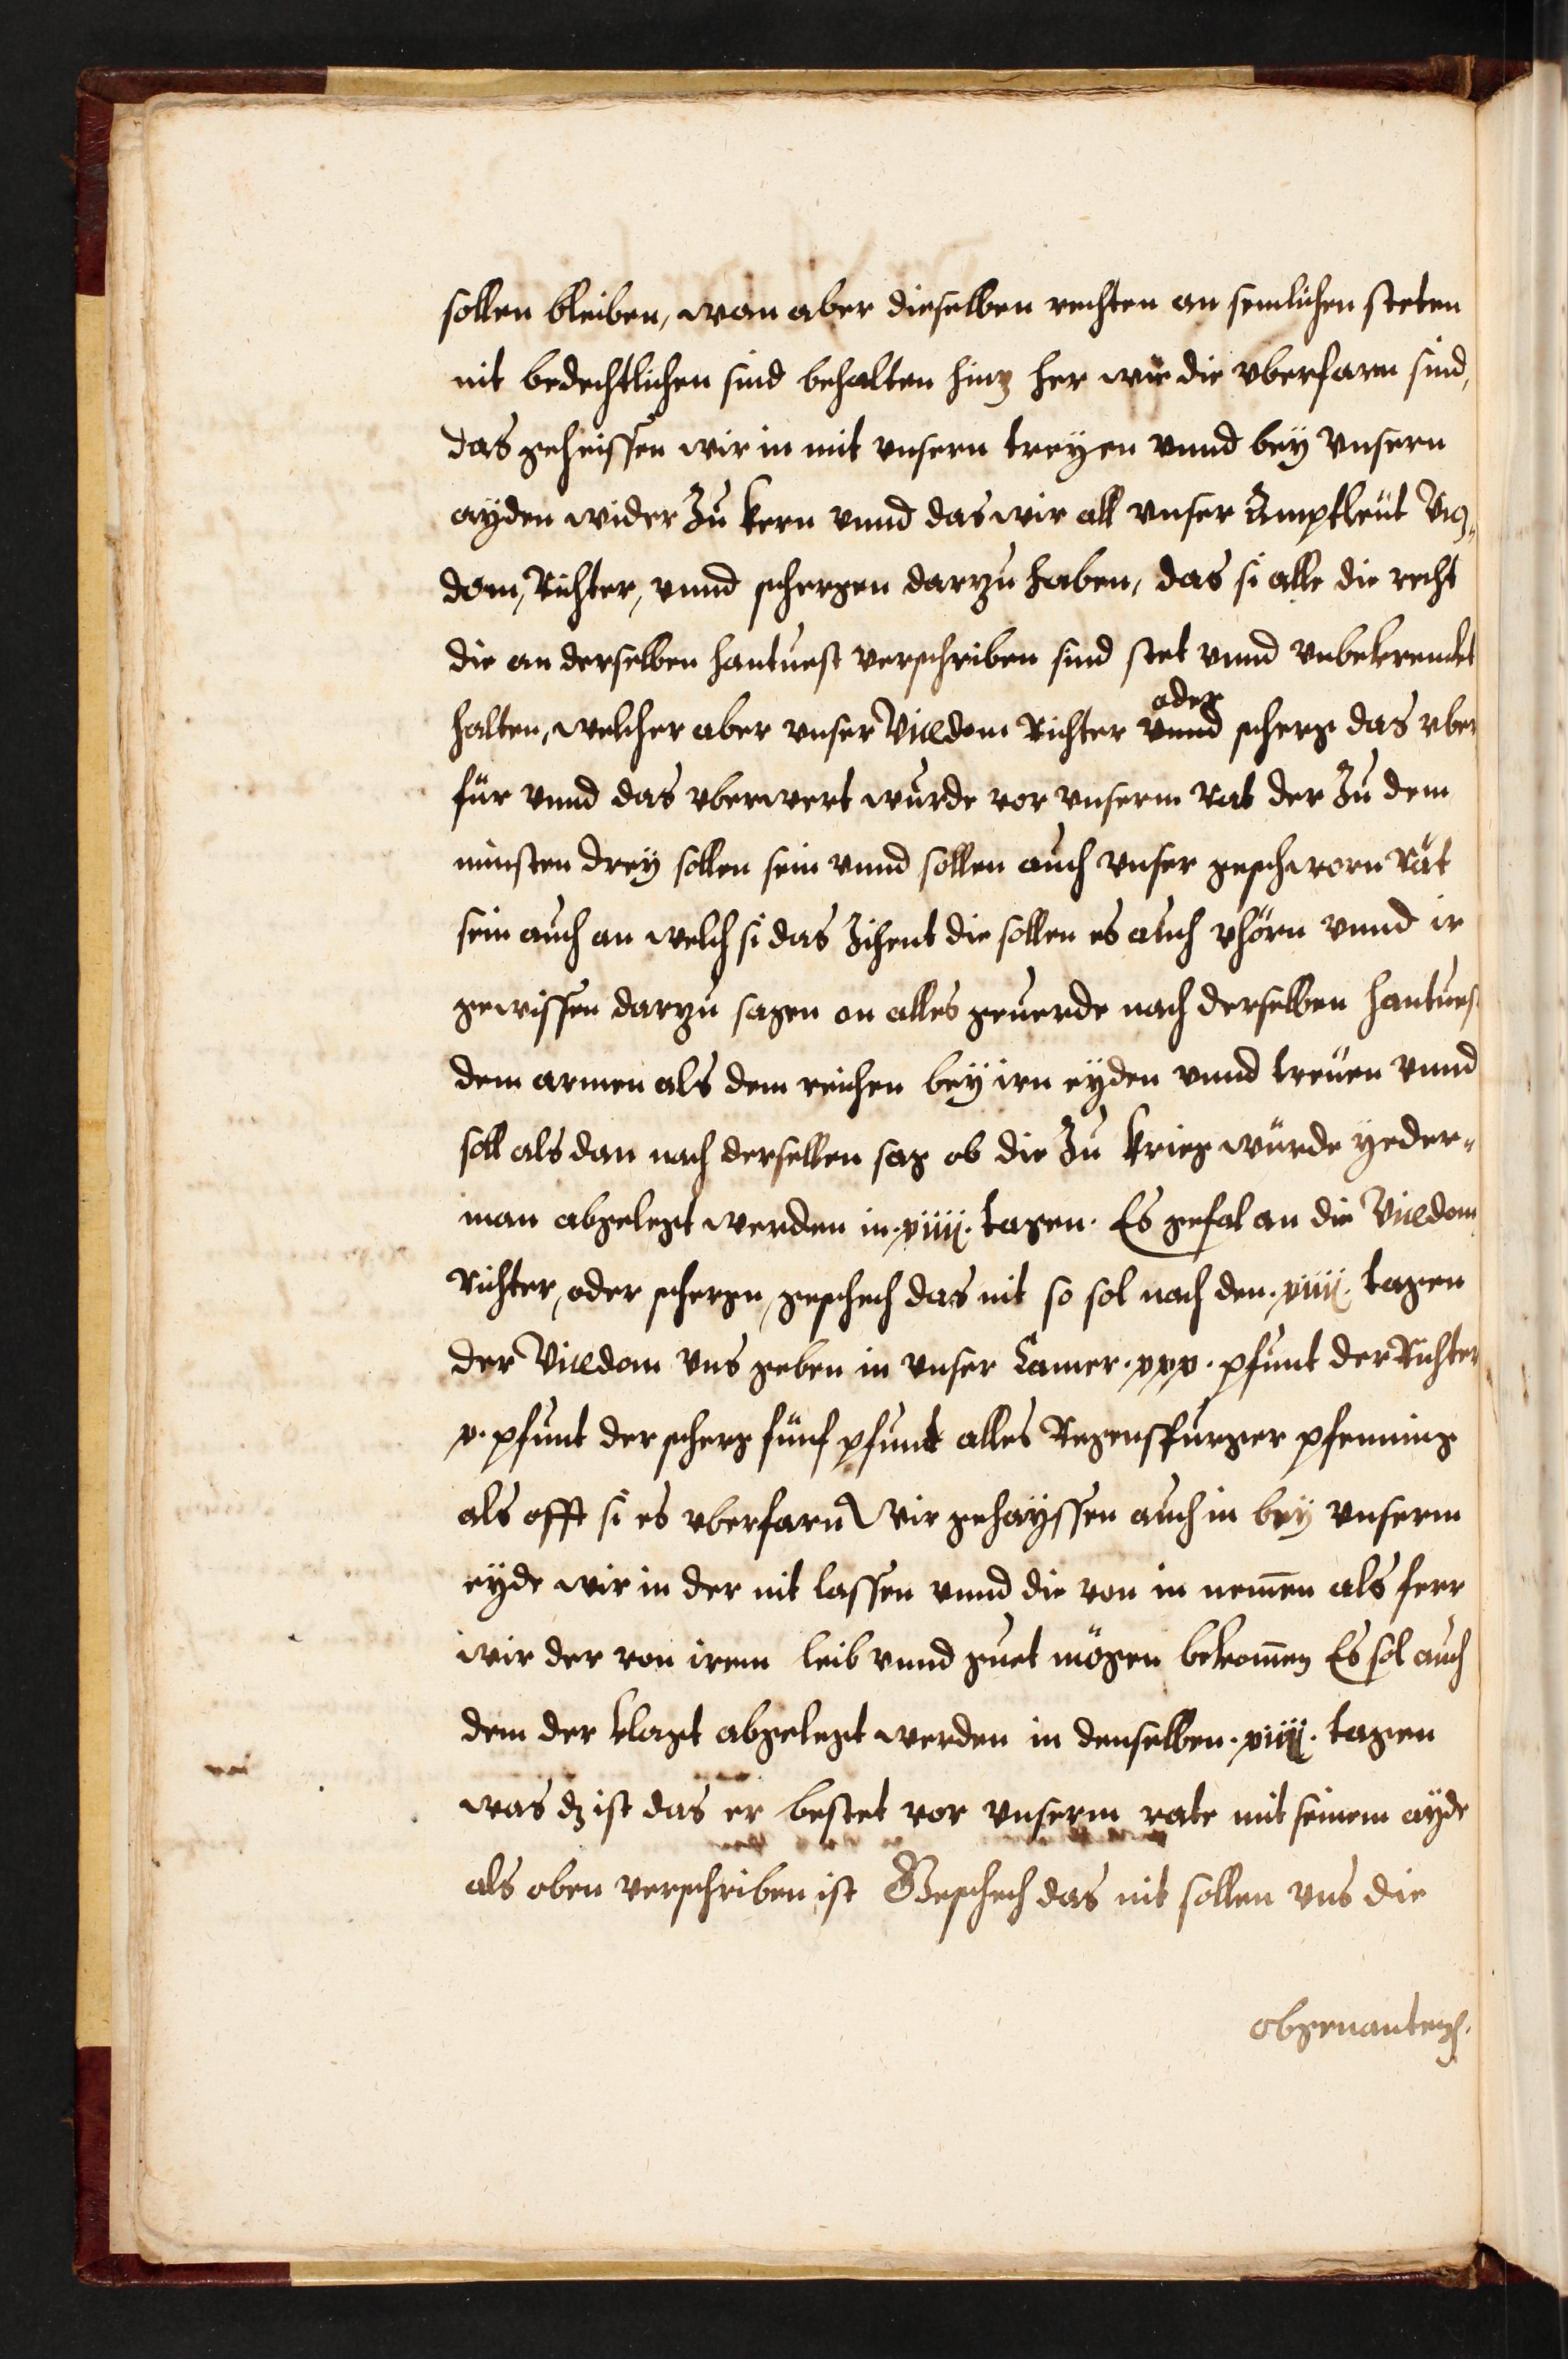 sollen bleiben, wan aber dieselben rechten an semlichen steten
nit bedechtlichen sind behalten hinz her wie die vberfarn sind,
das geheissen wir in mit vnsern treyen vnnd bey vnsern
ayden wider zu kern vnnd das wir all vnser Amptleut Viz-
dom, Richter, vnnd schergen darzu haben, das si alle die recht
die an derselben hantuest verschriben sind stet vnnd vnbekrenckt
halten, welcher aber vnser Vicedom Richter vnnd scherg das vber
oder
für vnnd das vberwert wurde vor vnserm Rat der zu dem
minsten drey sollen sein vnnd sollen auch vnser geschworn Rät
sein auch an welch si das zihent die sollen es auch vhörn vnnd ir
gewissen darzu sagen on alles geuerde nach derselben hantues
dem armen als dem reichen bey irn eyden vnnd treüen vnnd
soll als dan nach derselben sag ob die zu krieg würde yeder-
man abgelegt werden in .xiiij. tagen. Es gefal an die Vicedom
Richter, oder schergn, geschech das nit so sol nach den .xiiij. tagen
der Vicedom vns geben in vnser Camer .xxx. pfunt der Richter
x. pfunt der scherg fünf pfunt alles Regenspurger pfenning
als offt si es vberfarn Wir gehayssen auch in bey vnserm
eyde wir in der nit lassen vnnd die von in nem̄en als ferr
wir der von irem leib vnnd guet mögen bekom̄en Es sol auch
dem der klagt abgelegt werden in denselben .xiiij. tagen
was dz ist das er bestet vor vnserm rate mit seinem ayde
als oben verschriben ist Geschech das nit sollen vns die
obgenanten